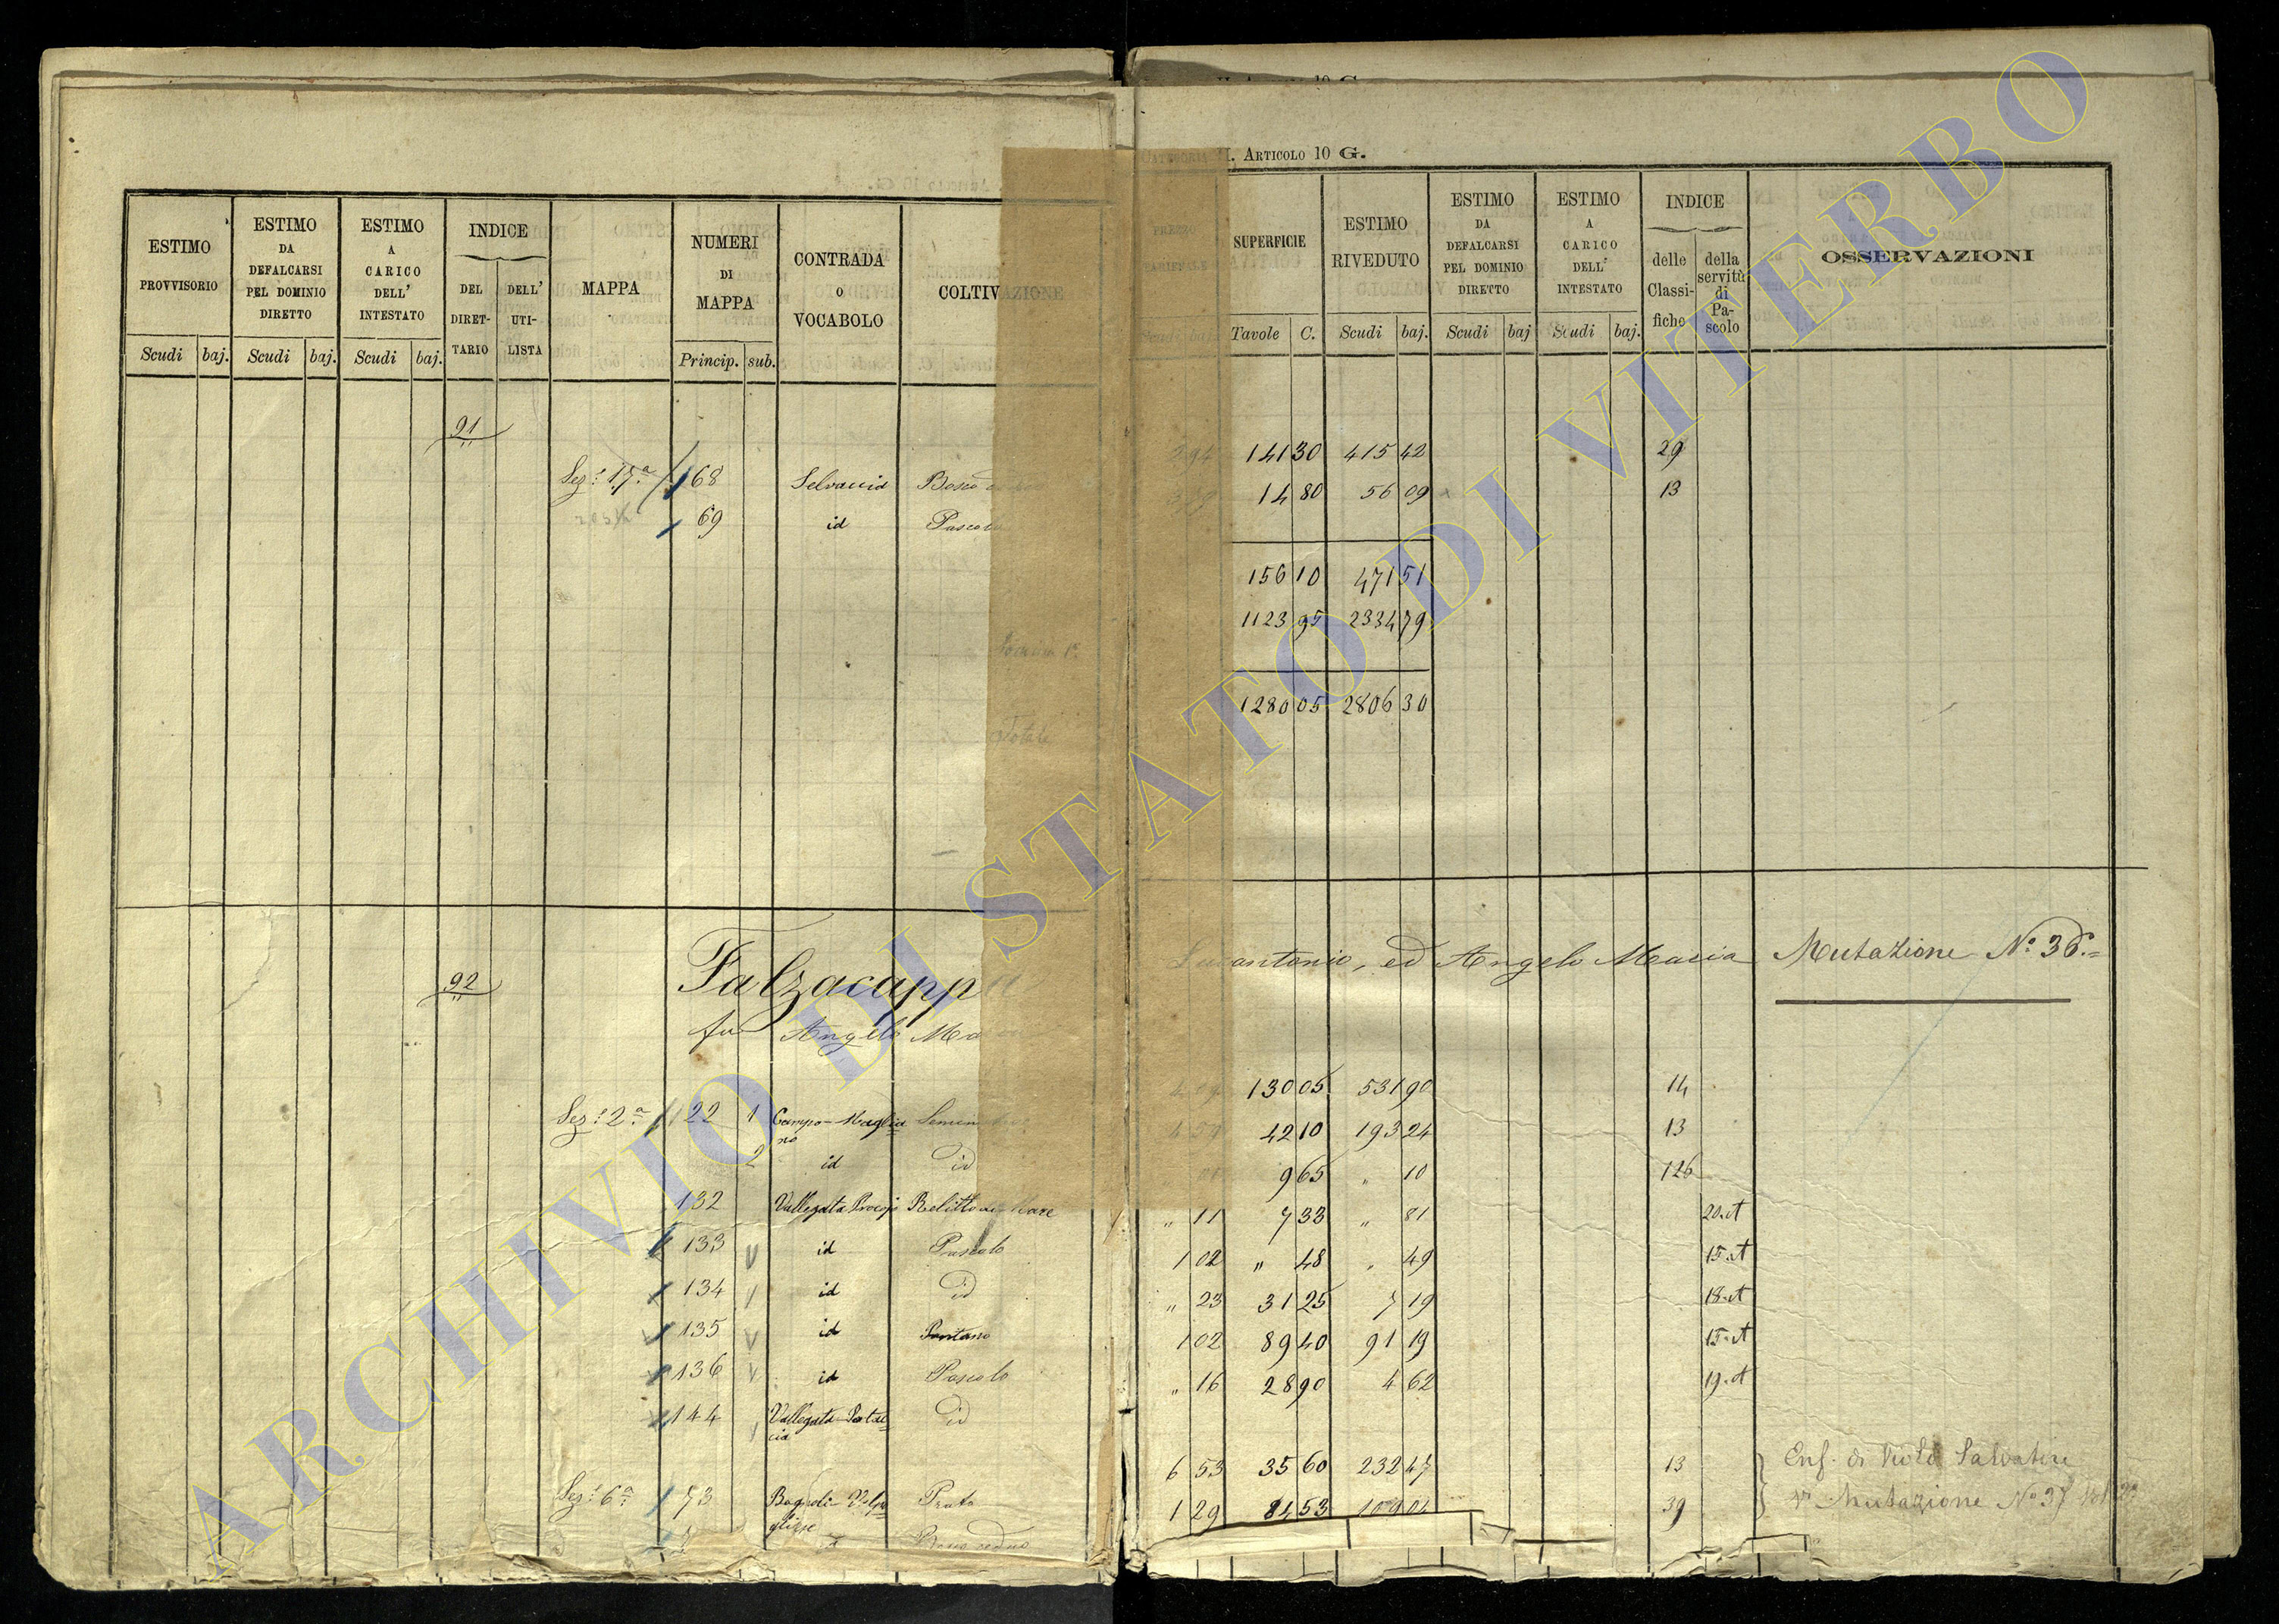 II. ARTICOLO 10 G.
ESTIMO PROVVISORIO
ESTIMO DA DEFALCARSI PEL DOMINIO DIRETTO
ESTIMO A CARICO DELL' INTESTATO
INDICE
DEL DIRETTARIO
DELL' UTILISTA
MAPPA
NUMERI DI MAPPA
CONTRADA O VOCABOLO
COLTIVAZIONE
PREZZO
SUPERFICIE
ESTIMO RIVEDUTO
ESTIMO DA DEFALCARSI PEL DOMINIO DIRETTO
ESTIMO A CARICO DELL' INTESTATO
INDICE
delle Classifiche
della servitù di Pascolo
OSSERVAZIONI
Scudi baj. Scudi baj. Scudi baj. Princip. sub.
Tavole C. Scudi baj. Scudi baj Scudi baj.
91
Sez.e 17.a 68 Selvaccid Bosco 141 30 415 42 29
69 id Pascolo 14 80 56 09 13
156 10 471 51
Somma 1a 1123 95 2334 79
Totale 1280 05 2806 30
92 Falzacappa Lucantonio, ed Angelo Maria Mutazione N.o 36.=
fu Angelo Ma
Sez.e 2.a 22 1 Campo-Maglia=
no
130 05 531 90 14
2 id id 4 59 42 10 193 24 13
132 Vallegata Procojo Relitto di Mare 9 65 " 10 126
133 id Pascolo " 11 7 33 " 81 20.A
134 id id 1 02 " 48 " 49 15.A
135 id Pantano " 23 31 25 7 19 18.A
136 id Pascolo 1 02 89 40 91 19 15.A
144 Vallegata id " 16 28 90 4 62 19.A
Sez.e 6.a 73 Prato 6 53 35 60 232 47 13 Enf. di Salvatore
1 29 84 53 109 04 39 Mutazione No 37
ARCHIVIO DI STATO DI VITERBO